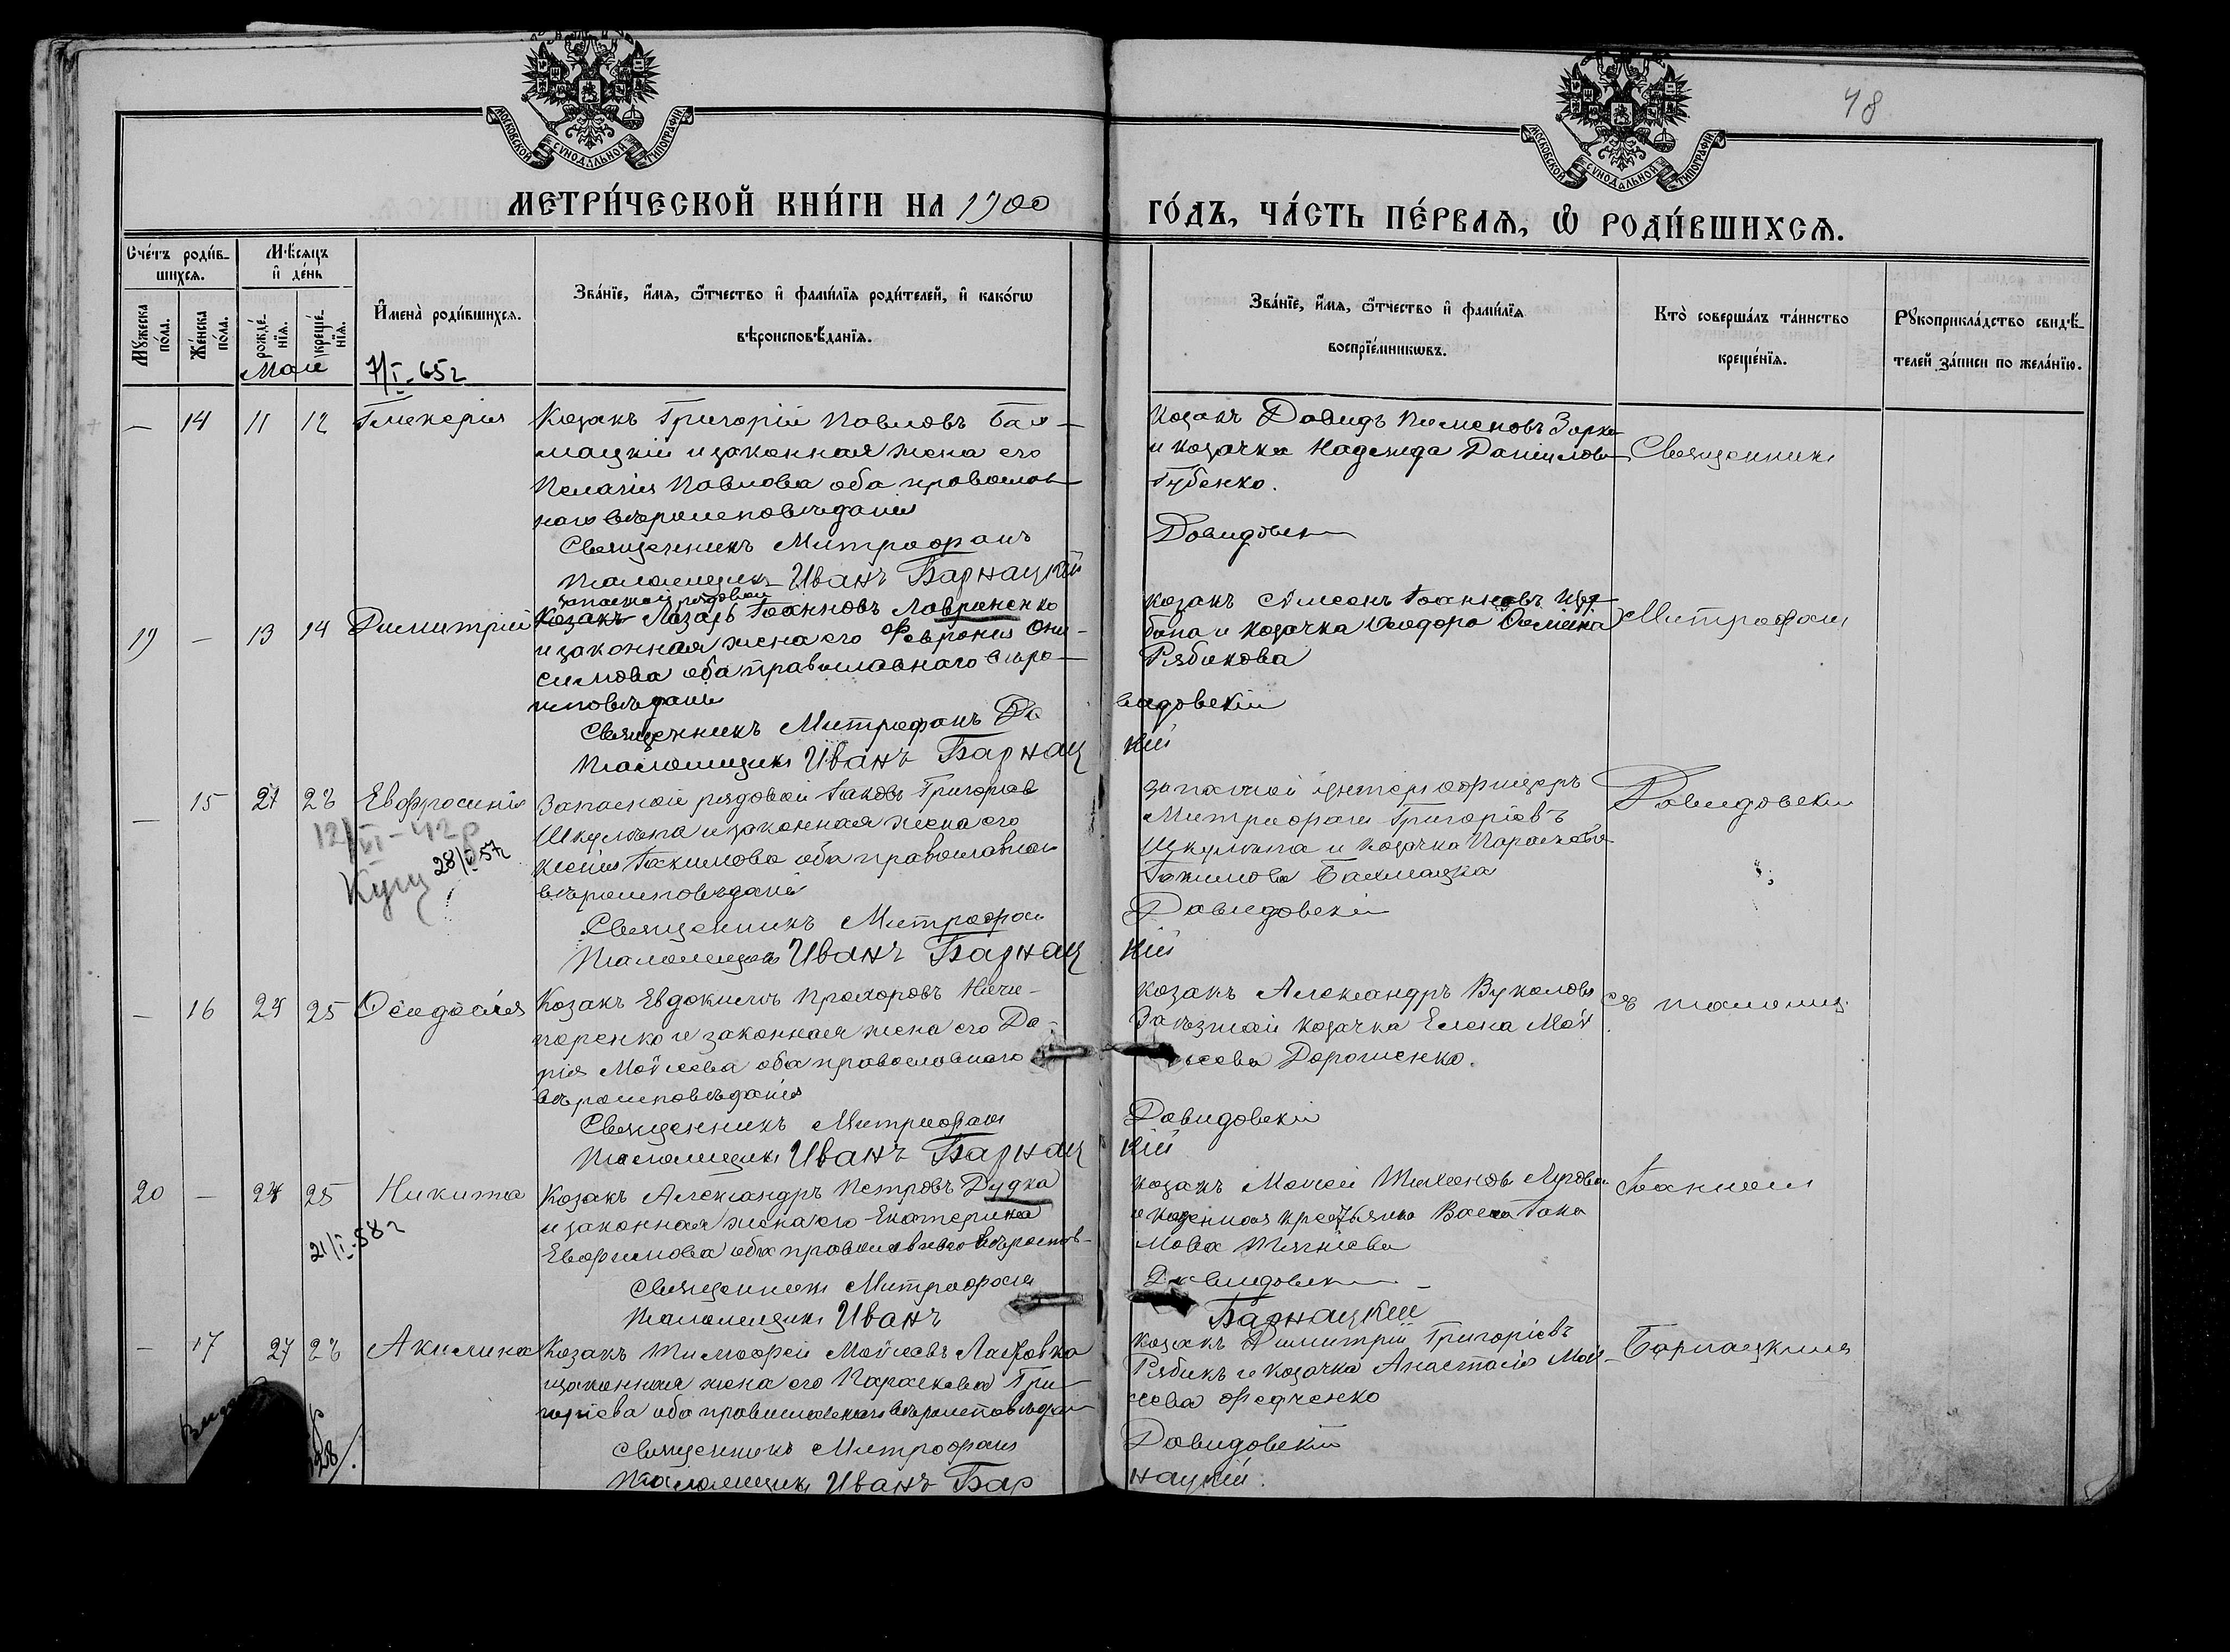 МОСКОВСКОЙ СѴНОДАЛЬНОЙ ТИПОГРАФІИ
МОСКОВСКОЙ СѴНОДАЛЬНОЙ ТИПОГРАФІИ
48
МЕТРИ́ЧЕСКОЙ КНИ́ГИ НА 1900
ГО́ДЪ, ЧА́СТЬ ПЕ́РВАѦ, Ѡ҆ РОДИ́ВШИХСѦ.
Сче́тъ роди́в-
шихсѧ.
Мѣ́сѧцъ
и҆ де́нь
Мꙋ́жеска
по́ла.
Же́нска
по́ла.
рожде́-
нїѧ.
креще́-
нїѧ.
И҆мена̀ роди́вшихсѧ.
Зва́нїе, и҆́мѧ, ѻ҆́тчество и҆ фамі́лїѧ роди́телей, и҆ како́гѡ
вѣроисповѣ́данїѧ.
Зва́нїе, и҆́мѧ, ѻ҆́тчество и҆ фамі́лїѧ
воспрїе́мникѡвъ.
Кто̀ соверша́лъ та́инство
креще́нїѧ.
Рꙋкоприкла́дство свидѣ́-
телей за́писи по жела́нїю.
Маи
7/I-65г
— 14 11 12 Гликерія
Козакъ Григорій Павловъ Бах-
мацкій и законная жена его
Пелагія Павлова оба православ-
наго вѣроисповѣданія
Священникъ Митрофанъ
Псаломщикъ Иванъ Барнацкій
Козакъ Давидъ Пименовъ Зарка
и козачка Надежда Данилова
Губенко.
Давидовскій
Священникъ
19 — 13 14 Димитрій
запасной рядовой
Козакъ Лазарь Іоанновъ Лавриненко
и законная жена его Феврония Они-
симова оба православнаго вѣро-
исповѣданія
Священникъ Митрофанъ Да
Псаломщикъ Иванъ Барнац
Козакъ Симеонъ Іоанновъ
и козачка Феодора
Рябикова
видовскій
кій
Митрофанъ
— 15 27 28 Евфросинія
12/VI-42р
28/I 57г
Кущ
Запасной рядовой Іаковъ Григорьев
Шкулипа и законная жена его
Ксенія Іакимова оба православнаго
вѣроисповѣданія
Священникъ Митрофан
Псаломщикъ Иванъ Барнац
запасной унтеръ офицеръ
Митрофанъ Григоріевъ
Шкулипа и козачка Параскева
Іакимова Бахмацка
Давидовскій
кій
Давидовскій
— 16 24 25 Феодосія
Козакъ Евдокимъ Прохоровъ Ничи-
поренко и законная жена его Да-
рія Моѵсеева оба православнаго
вѣроисповѣданія
Священникъ Митрофанъ
Псаломщикъ Иванъ Барнац
Козакъ Александръ Вуколовъ
козачка Елена Моѵ
сеева Дорошенко.
Давидовскій
кій
съ псаломщ
20 — 24 25 Никита
21/I-58г
Козакъ Александръ Петровъ Дудка
и законная жена его Екатерина
Евфимова оба православнаго вѣроиспов-
Священникъ Митрофанъ
Псаломщикъ Иванъ
Козакъ Моисей
и крестьянка Іаки
мова
Давидовскій
Барнацкій
Іоанномъ
— 17 27 28 Акилина
28/.
Козакъ Тимофей Моѵсеевъ Ласковка
и законная жена его Параскева Гри-
горіева оба православнаго вѣроисповѣдан
Священникъ Митрофанъ
Псаломщикъ Иванъ Бар
Козакъ Димитрій Григоріевъ
Рябикъ и козачка Анастасія Моѵ-
сеева Федченко
Давидовскій
нацкій.
Барнацкимъ